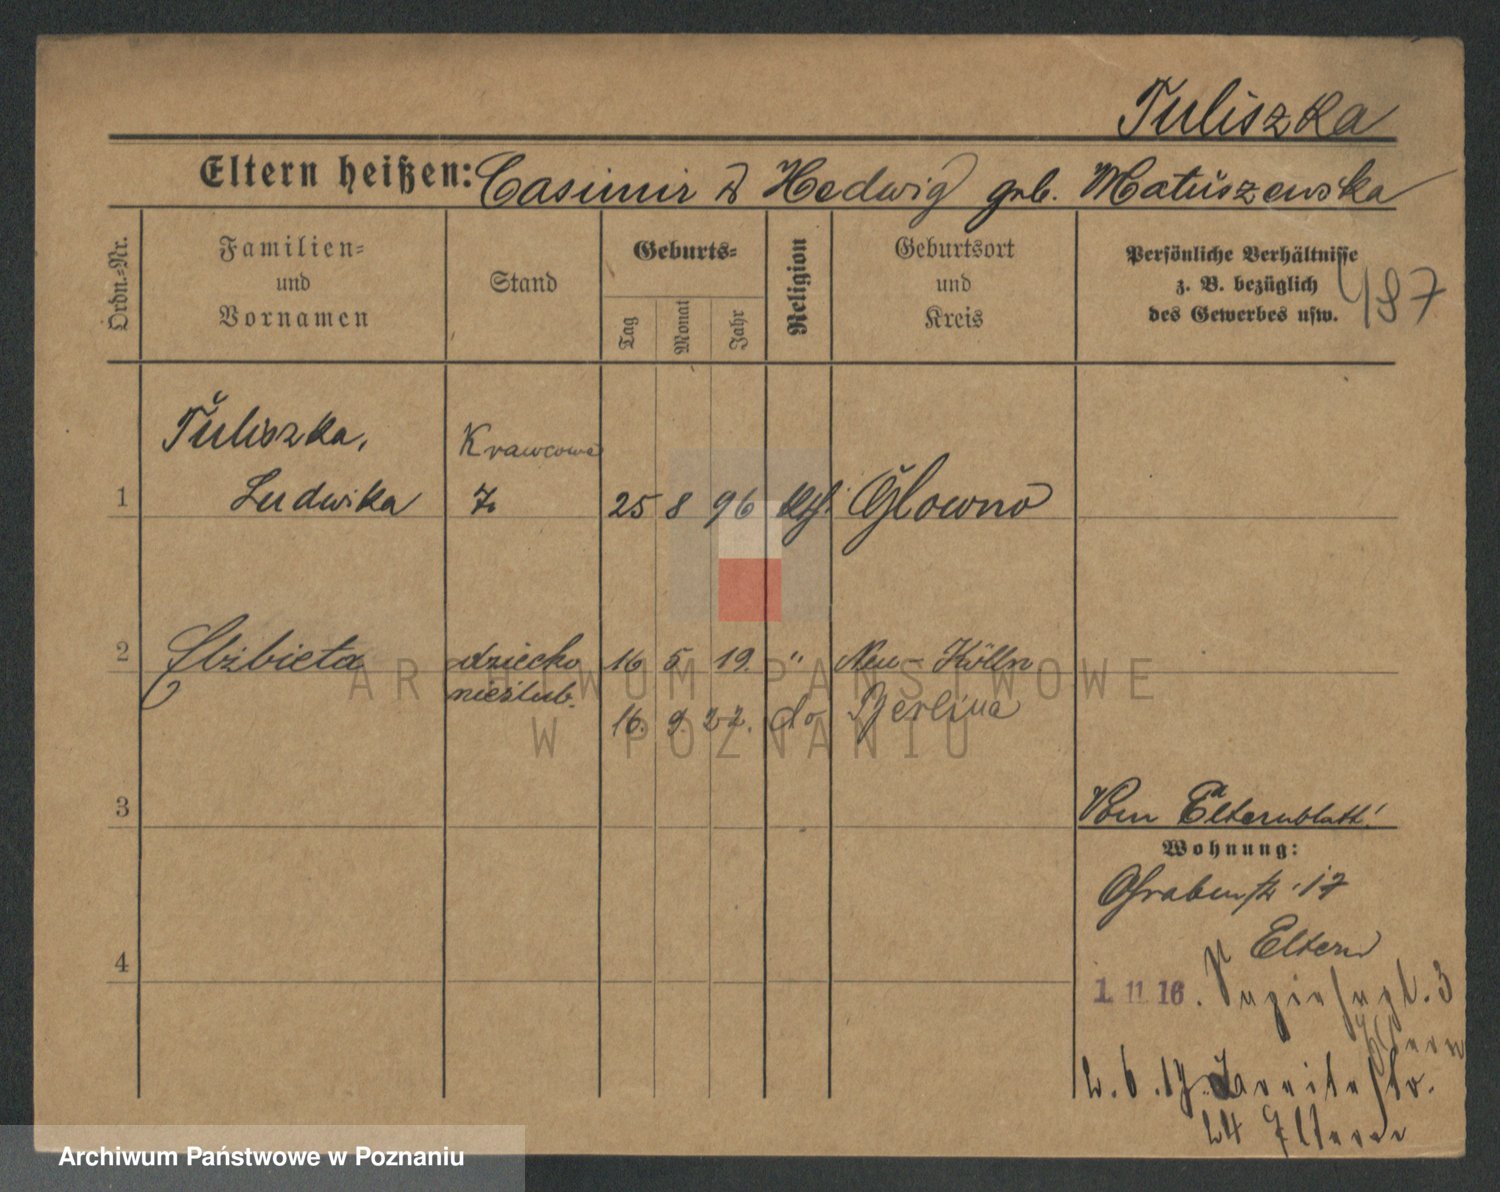 Tuliszka
Eltern heißen: Casimir & Hedwig geb. Matuszewska
Ordn.-Nr.
Familien-
und
Vornamen
Stand
Geburts-
Tag
Monat
Jahr
Religion
Geburtsort
und
Kreis
Persönliche Verhältnisse
z. B. bezüglich
des Gewerbes usw.
487
Tuliszka, Krawcowa
1 Ludwika 25 8 96 Głowno
2 Elżbieta dziecko 16 5. 19. " Neu-Kölln
nieślub. 16. 9. 27. do Berlina
3
Vom Elternblatt!
Wohnung:
Grabenstr. 17
Eltern
4
1. 11. 16. 3
Eltern
2. 6. 17. Breitestr.
24 Eltern
ARCHIWUM PAŃSTWOWE
W POZNANIU
Archiwum Państwowe w Poznaniu